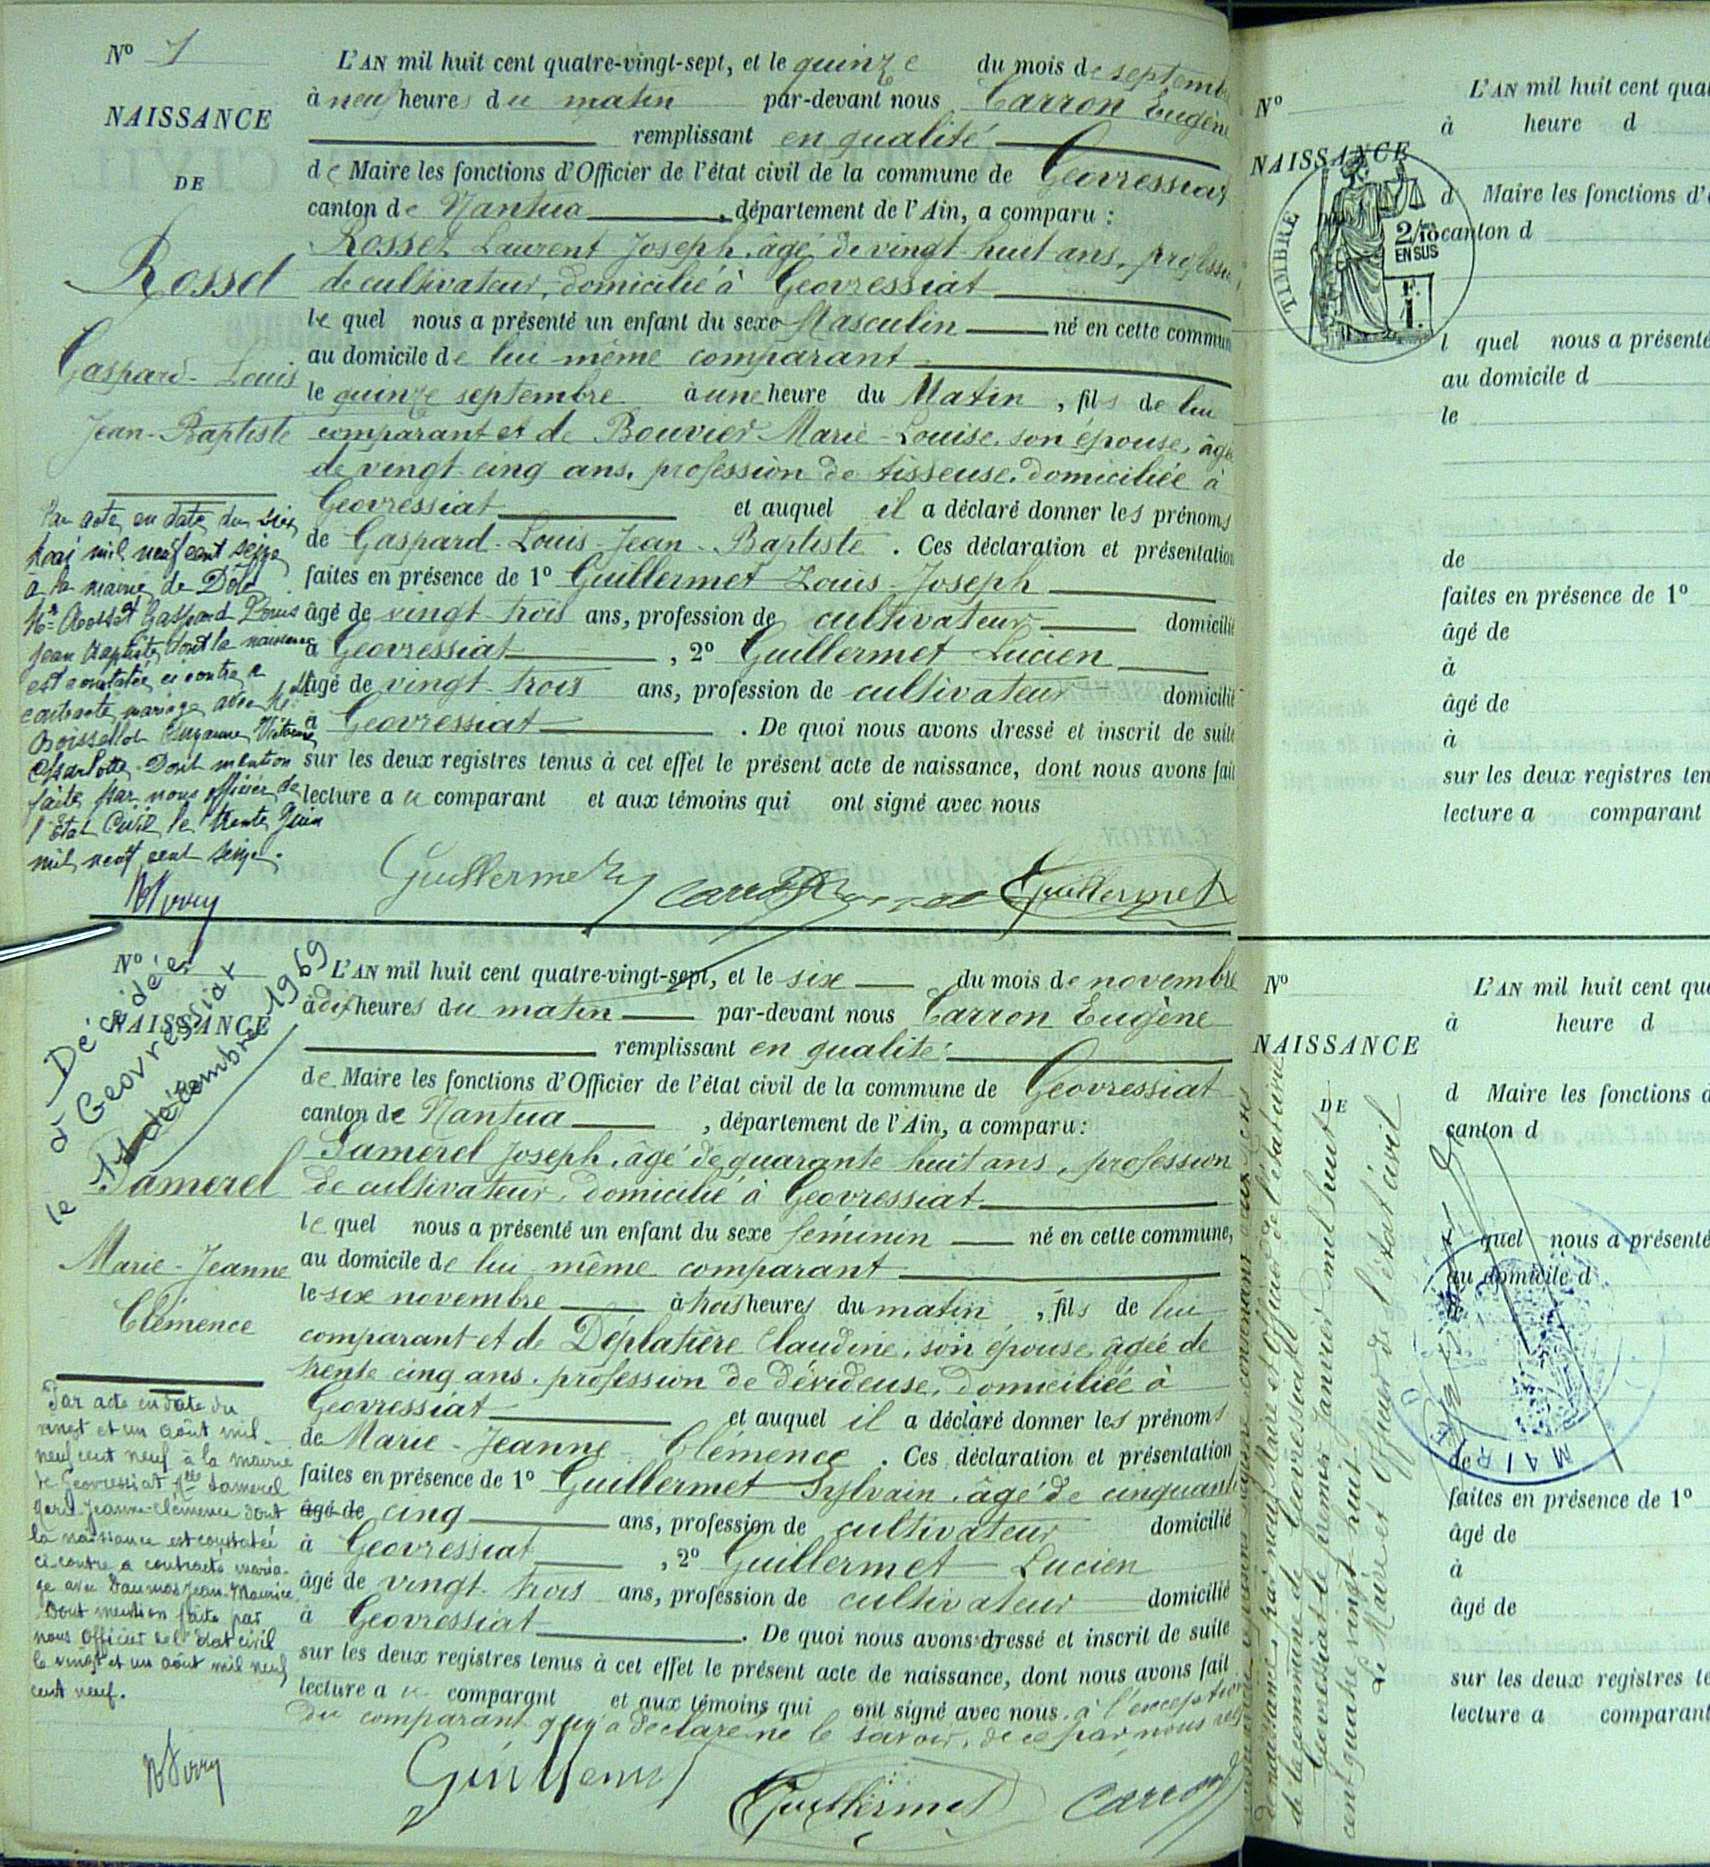 Nº 7
NAISSANCE
DE
Rosset
Gaspard-Louis
Jean-Baptiste
Par acte en date du six
mai mil neuf cent seize
à la mairie de Dôle
Mr Rosset Gaspard Louis
Jean Baptiste dont la naissance
est constatée ci contre a
contracté mariage avec Melle
Boisselot Suzanne Victorine
Charlotte. Dont mention
faite par nous officier de
l'Etat Civil le trente Juin
mil neuf cent seize.
L'AN mil huit cent quatre-vingt-sept, et le quinze du mois de septembre
à neuf heures du matin par-devant nous Carron Eugène
remplissant en qualité
de Maire les fonctions d'Officier de l'état civil de la commune de Geovressiat
canton de Nantua, département de l'Ain, a comparu :
Rosset Laurent Joseph, âgé de vingt-huit ans, profession
de cultivateur, domicilié à Geovressiat
lequel nous a présenté un enfant du sexe Masculin né en cette commune
au domicile de lui même comparant
le quinze septembre à une heure du Matin, fils de lui
comparant et de Bouvier Marie-Louise, son épouse, âgée
de vingt cinq ans, profession de tisseuse, domiciliée à
Geovressiat et auquel il a déclaré donner les prénoms
de Gaspard-Louis-Jean-Baptiste. Ces déclaration et présentation
faites en présence de 1º Guillermet Louis Joseph
âgé de vingt trois ans, profession de cultivateur domicilié
à Geovressiat, 2º Guillermet Lucien
âgé de vingt trois ans, profession de cultivateur domicilié
à Geovressiat. De quoi nous avons dressé et inscrit de suite
sur les deux registres tenus à cet effet le présent acte de naissance, dont nous avons fait
lecture au comparant et aux témoins qui ont signé avec nous
Guillermet Carron Guillermet
Nº
NAISSANCE
Décédée
à Geovressiat
le 11 décembre 1969
Tamerel
Marie-Jeanne
Clémence
Par acte en date du
vingt et un août mil
neuf cent neuf à la mairie
de Geovressiat Melle Tamerel
Marie-Jeanne-Clémence dont
la naissance est constatée
ci contre a contracté maria-
ge avec Daumas Jean-Maurice
Dont mention faite par
nous Officier de l'état civil
le vingt et un août mil neuf
cent neuf.
L'AN mil huit cent quatre-vingt-sept, et le six du mois de novembre
à dix heures du matin par-devant nous Carron Eugène
remplissant en qualité
de Maire les fonctions d'Officier de l'état civil de la commune de Geovressiat
canton de Nantua, département de l'Ain, a comparu :
Tamerel Joseph, âgé de quarante huit ans, profession
de cultivateur, domicilié à Geovressiat
lequel nous a présenté un enfant du sexe féminin né en cette commune,
au domicile de lui même comparant
le six novembre à trois heures du matin, fils de lui
comparant et de Déplatière Claudine, son épouse, âgée de
trente cinq ans, profession de dévideuse, domiciliée à
Geovressiat et auquel il a déclaré donner les prénoms
de Marie-Jeanne-Clémence. Ces déclaration et présentation
faites en présence de 1º Guillermet Sylvain, âgé de cinquante
âgé de cinq ans, profession de cultivateur domicilié
à Geovressiat, 2º Guillermet Lucien
âgé de vingt trois ans, profession de cultivateur domicilié
à Geovressiat. De quoi nous avons dressé et inscrit de suite
sur les deux registres tenus à cet effet le présent acte de naissance, dont nous avons fait
lecture au comparant et aux témoins qui ont signé avec nous, à l'exception
du comparant qui a déclaré ne le savoir, de ce par nous
Guillermet Guillermet Carron
Nº
NAISSANCE
TIMBRE
2/10
EN SUS
F.
1.
L'AN mil huit cent qua
à heure d
d Maire les fonctions d'
canton d
l quel nous a présenté
au domicile d
le
de
faites en présence de 1º
âgé de
à
âgé de
à
sur les deux registres ten
lecture a comparant
Nº
NAISSANCE
DE
de naissance par nous Maire et Officier de l'état civil
de la commune de Geovressiat
Geovressiat le premier Janvier mil huit
cent quatre vingt huit
Le Maire et Officier de l'état civil
MAIRIE
L'AN mil huit cent qua
à heure d
d Maire les fonctions d
canton d
quel nous a présenté
au domicile d
de
faites en présence de 1º
âgé de
à
âgé de
sur les deux registres te
lecture a comparant